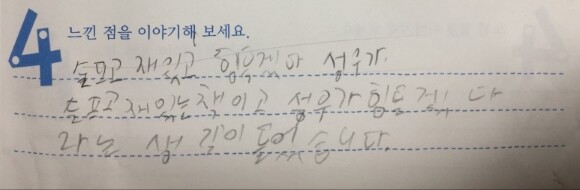 4 느낀 점을 이야기해 보세요.
슬프고 재있고 힘들겠다 성우가.
슬프고 재있는 책이고 성우가 힘들겠다
라는 생각이 들었습니다.